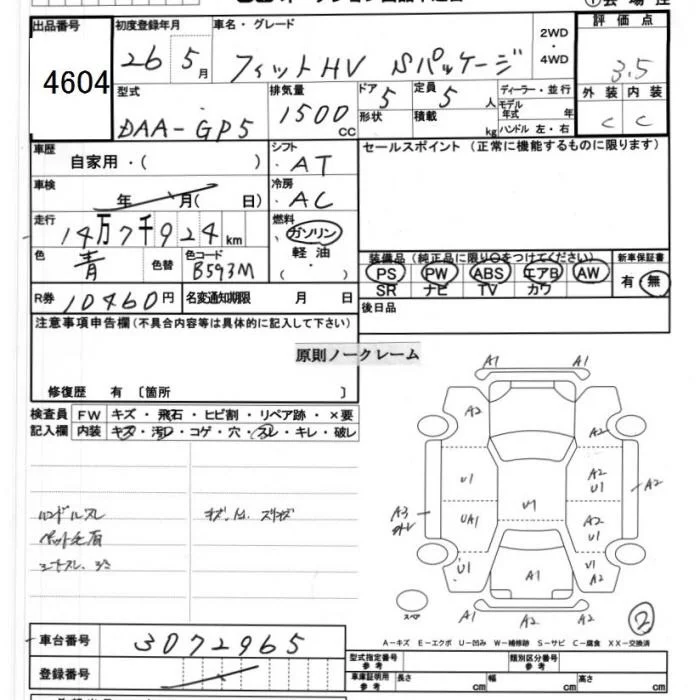 出品番号 初度登録年月 車名・グレード 2WD・4WD 評価点
4604 26 5月 フィットHV Sパッケージ 3.5
型式 排気量 ドア 定員 ディーラー・並行 外装 内装
DAA-GP5 1500cc 5 5人 モデル年式 年 C C
形状 積載 kg ハンドル 左・右
車歴 自家用・( ) シフト AT セールスポイント (正常に機能するものに限ります)
車検 年 月( 日) 冷房 AC
走行 14万7千924km 燃料 ガソリン
色 青 色替 色コード B593M 軽油・( )
装備品 (純正品に限り○をつけてください) 新車保証書
PS PW ABS エアB AW 有 無
SR ナビ TV カワ
R券 10460円 名変通知期限 月 日 後日品
注意事項申告欄(不具合内容等は具体的に記入して下さい)
原則ノークレーム
修復歴 有 〔箇所 〕
検査員 FW キズ・飛石・ヒビ割・リペア跡・×要
記入欄 内装 キズ・汚レ・コゲ・穴・スレ・キレ・破レ
ハンドルスレ
ペット毛有
A1 A1
A2 A2
U1 A2 U1 A2
A3 UA1 U1 A2 U1
U1 A1 U1 A2
A1 A2 A2
スペア
2
A-キズ E-エクボ U-凹み W-補修跡 S-サビ C-腐食 XX-交換済
車台番号 3072965 型式指定番号 参考 類別区分番号 参考
登録番号 車庫証明用 参考 長さ cm 幅 cm 高さ cm